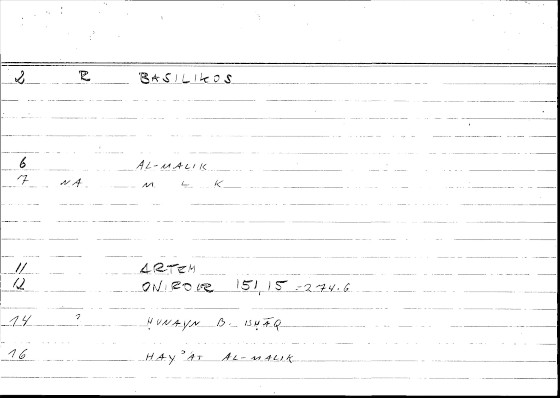 2 R BASILIKOS
6 AL-MALIK
7 NA M L K
11 ARTEM
12 ONIROCR 151,15 = 274.6
14 ? ḤUNAYN B. ISḤĀQ
16 HAYʾAT AL-MALIK